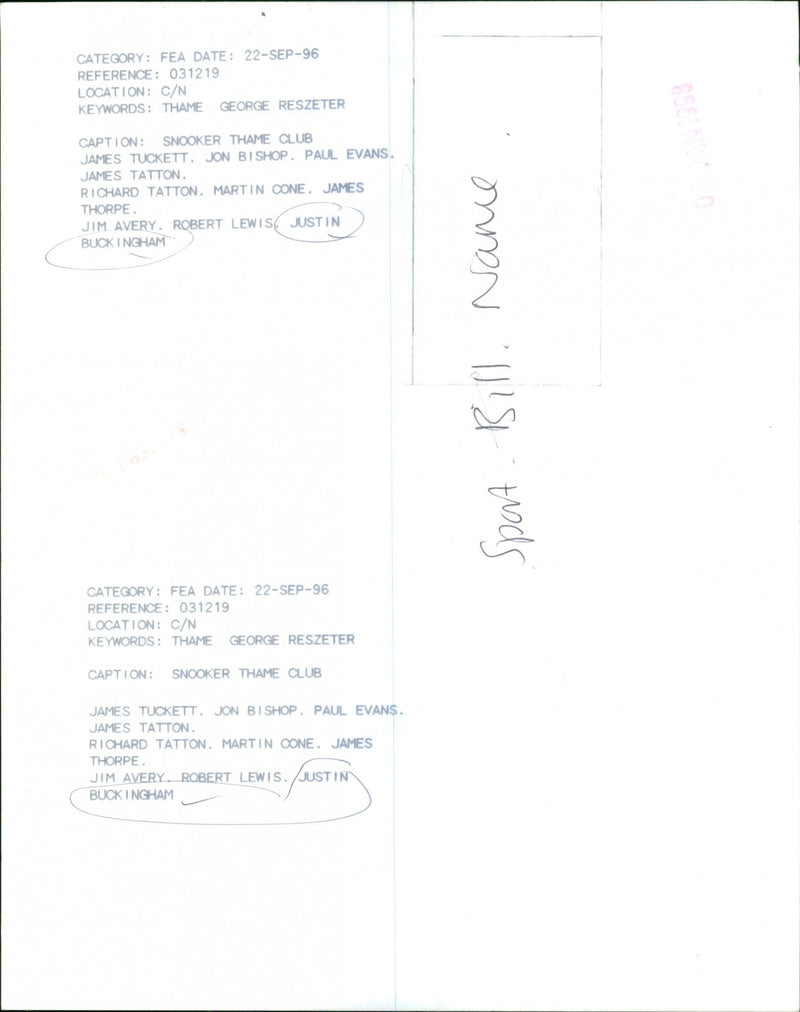 CATEGORY: FEA DATE: 22-SEP-96
REFERENCE: 031219
LOCATION: C/N
KEYWORDS: THAME GEORGE RESZETER
CAPTION: SNOOKER THAME CLUB
JAMES TUCKETT. JON BISHOP. PAUL EVANS.
JAMES TATTON.
RICHARD TATTON. MARTIN CONE. JAMES
THORPE.
JIM AVERY. ROBERT LEWIS. JUSTIN
BUCKINGHAM
Sport - Bill. Name.
CATEGORY: FEA DATE: 22-SEP-96
REFERENCE: 031219
LOCATION: C/N
KEYWORDS: THAME GEORGE RESZETER
CAPTION: SNOOKER THAME CLUB
JAMES TUCKETT. JON BISHOP. PAUL EVANS.
JAMES TATTON.
RICHARD TATTON. MARTIN CONE. JAMES
THORPE.
JIM AVERY. ROBERT LEWIS. JUSTIN
BUCKINGHAM